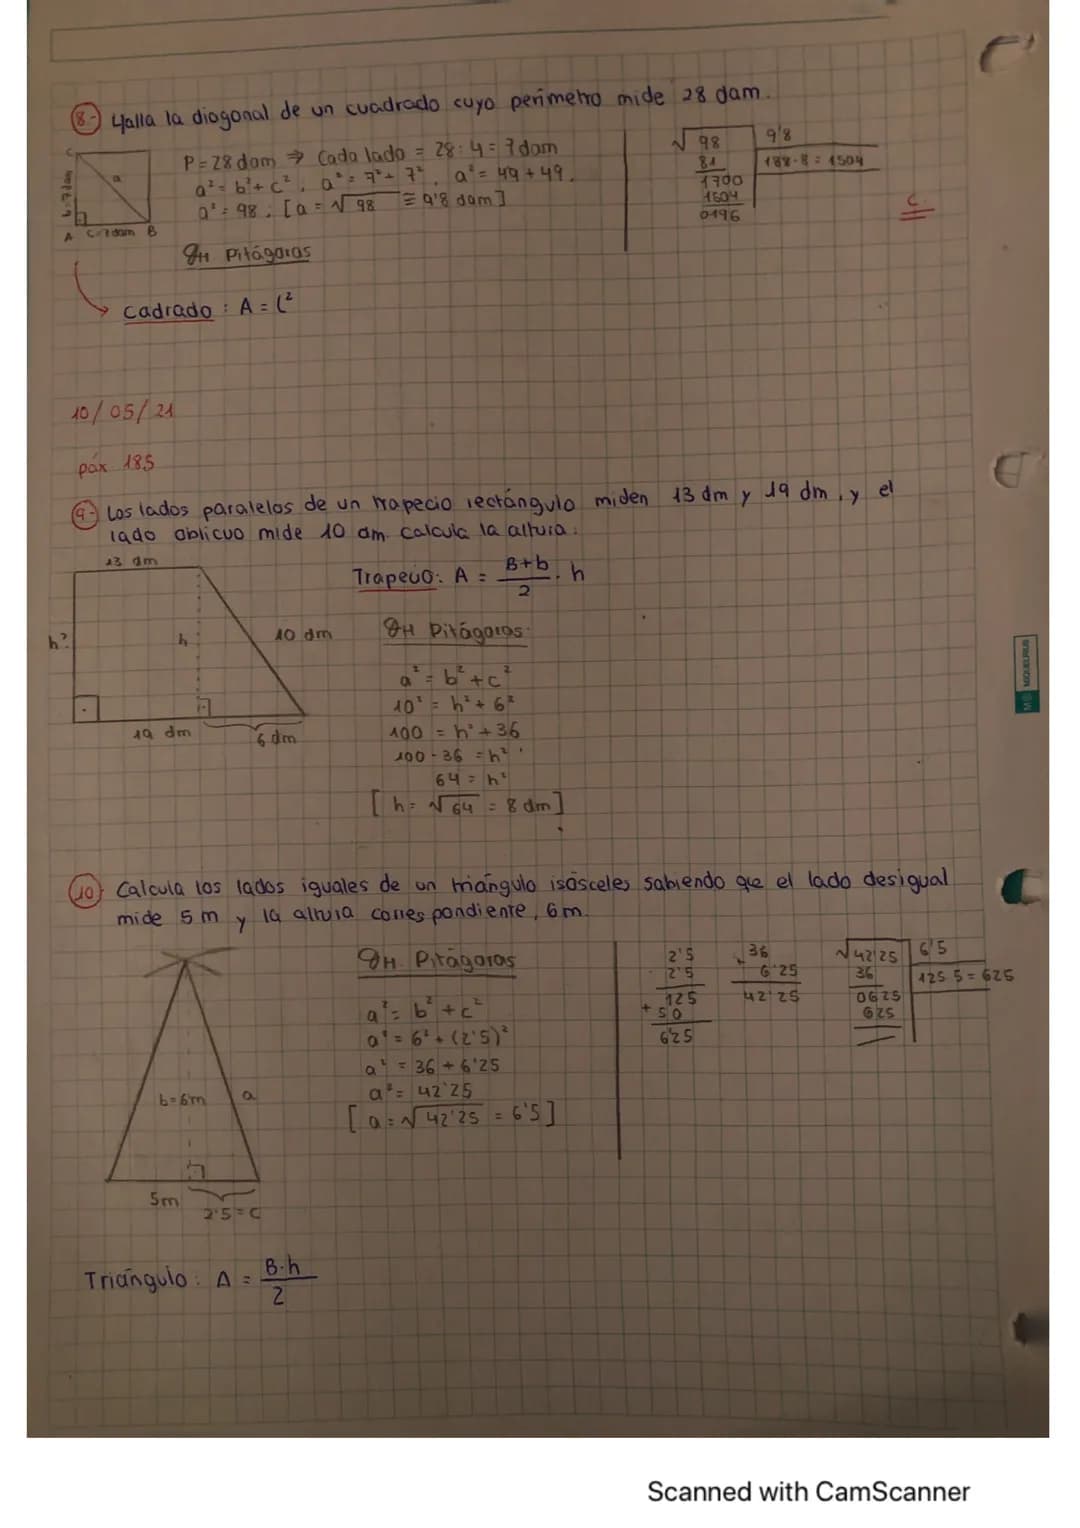 8.- Halla la diagonal de un cuadrado cuyo perímetro mide 28 dam.
C
b=7dam
a
A C=7dam B
P=28dam ⇒ Cada lado = 28:4=7dam
a²=b²+c². a²=7²+7². a²=49+49.
a²=98. [a=√98 ≅ 9'8 dam]
TH Pitágoras
√98 9'8
81 188·8=1504
1700
1504
0196
C.
cadrado: A=l²
10/05/21
páx. 185
9.- Los lados paralelos de un trapecio rectángulo miden 13 dm y 19 dm, y el
lado oblicuo mide 10 dm. Calcula la altura.
13 dm
h?
h
10 dm
19 dm
6 dm
Trapecio: A = B+b/2 · h
TH Pitágoras:
a²=b²+c²
10²=h²+6²
100=h²+36
100-36=h²
64=h²
[h=√64=8dm]
MIQUELRIUS
10 Calcula los lados iguales de un triángulo isósceles sabiendo que el lado desigual
mide 5 m y la altura correspondiente, 6m.
b=6m
a
5m
2'5=C
TH. Pitágoras
a²=b²+c²
a²=6²+(2'5)²
a²=36+6'25
a²=42'25
[a=√42'25=6'5]
2'5
2'5
125
+50
6'25
36
6'25
42'25
√42'25 6'5
36 125·5=625
0625
625
Triángulo: A = B·h/2
Scanned with CamScanner